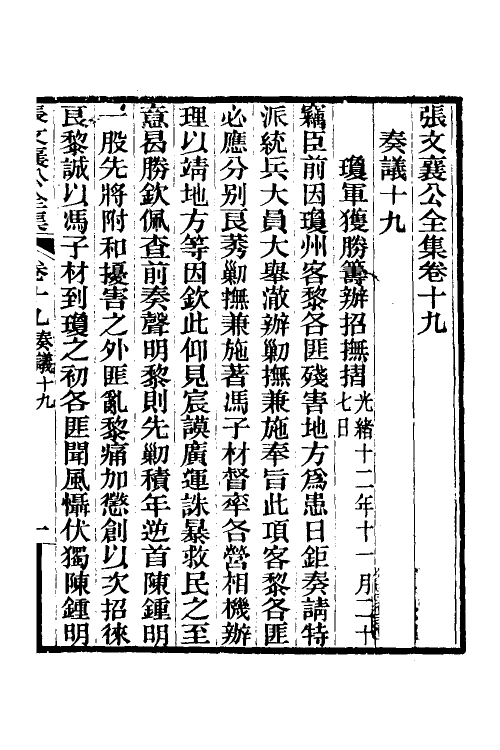 張文襄公全集卷十九
奏議十九
瓊軍獲勝籌辦招撫摺光緒十二年十一月二十七日
竊臣前因瓊州客黎各匪殘害地方爲患日鉅奏請特
派統兵大員大舉澈辦勦撫兼施奉旨此項客黎各匪
必應分别良莠勦撫兼施著馮子材督率各營相機辦
理以靖地方等因欽此仰見宸謨廣運誅暴救民之至
意曷勝欽佩查前奏聲明黎則先勦積年逆首陳鍾明
一股先將附和擾害之外匪亂黎痛加懲創以次招徠
良黎誠以馮子材到瓊之初各匪聞風懾伏獨陳鍾明
張文襄公全集
卷十九奏議十九
一